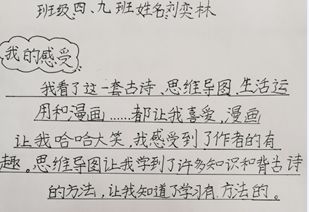 班级四、九班姓名刘奕林
我的感受
我看了这一套古诗、思维导图、生活运
用和漫画……都让我喜爱,漫画
让我哈哈大笑,我感受到了作者的有
趣。思维导图让我学到了许多知识和背古诗
的方法,让我知道了学习有方法的。